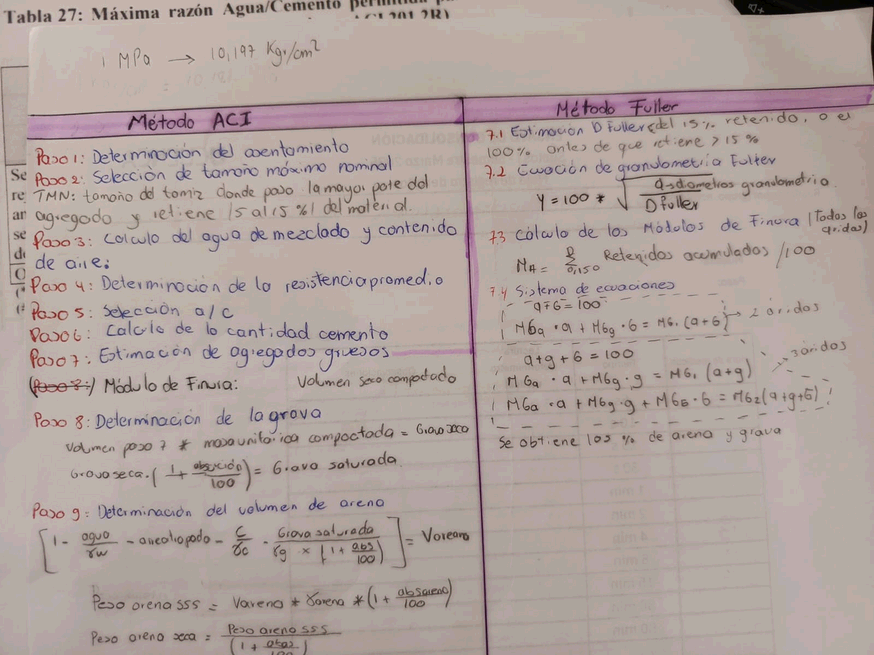 Tabla 27: Máxima razón Agua/Cemento
1 MPa → 10,197 Kgr/cm²
Método ACI
Paso 1: Determinación del asentamiento
Paso 2: Selección de tamaño máximo nominal
TMN: tamaño del tamiz donde pasa la mayor parte del
agregado y retiene (5 al 15%) del material.
Paso 3: Calculo del agua de mezclado y contenido
de aire:
Paso 4: Determinación de la resistencia promedio
Paso 5: Selección a/c
Paso 6: Calculo de la cantidad cemento
Paso 7: Estimación de agregados gruesos
Módulo de Finura: Volumen seco compactado
Paso 8: Determinación de la grava
Volumen paso 7 * masa unitaria compactada = Grava seca
Grava seca . (1 + absorción/100) = Grava saturada
Paso 9: Determinación del volumen de arena
[1 - agua/γw - aire atrapado - C/γc - Grava saturada/γg × (1 + abs/100)] = Varena
Peso arena SSS = Varena * γarena * (1 + abs arena/100)
Peso arena seca = Peso arena SSS/(1 +
Método Fuller
7.1 Estimación D Fuller del 15% retenido, o el
100% antes de que retiene > 15%
7.2 Ecuación de granulometría Fuller
Y = 100 * √(d → diametros granulometria / D fuller)
7.3 cálculo de los Módulos de Finura (Todos los aridos)
Σ 0,150 Retenidos acumulados /100
7.4 Sistema de ecuaciones
a+G = 100
MGa · a + MGg · G = MG1 (a+G) → 2 áridos
a + g + G = 100
MGa · a + MGg · g = MG1 (a+g) 3 áridos
MGa · a + MGg · g + MGG · G = MG2 (a+g+G)
Se obtiene los % de arena y grava